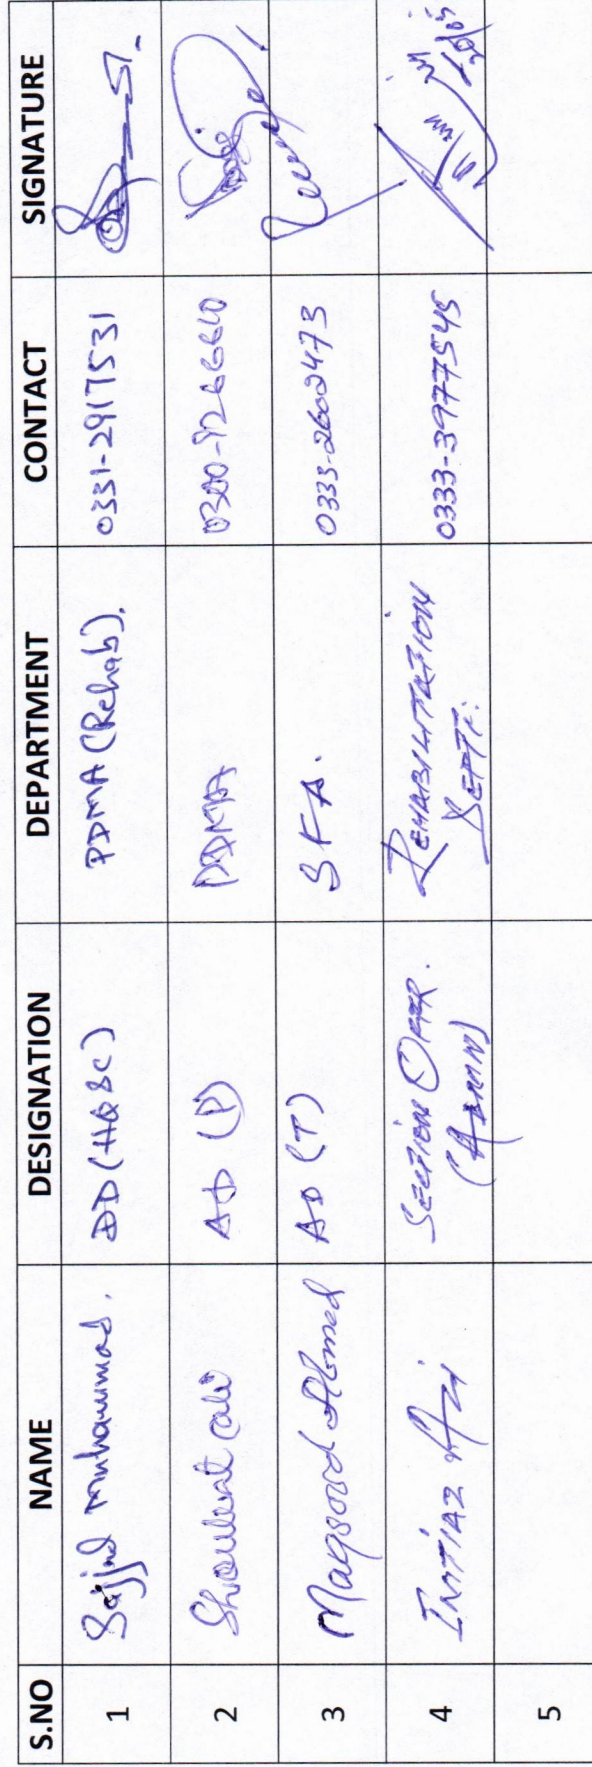 S.NO NAME DESIGNATION DEPARTMENT CONTACT SIGNATURE
1 Sajjad Muhammad. DD (HQ&C) PDMA (Rehab). 0331-2917531
2 Shoukat Ali AD (P) PDMA
3 Maqsood Ahmed AD (T) SFA. 0333-2602473
4 IMTIAZ Ali SECTION OFFR. REHABILITATION 0333-3977545
(ADMN) DEPTT:
5